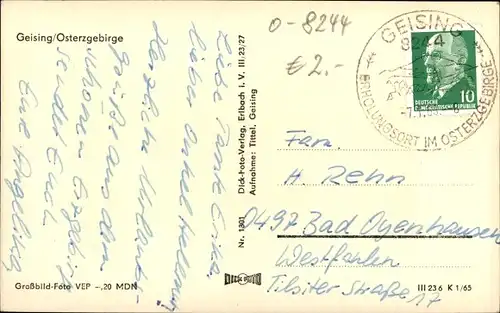 Geising/Osterzgebirge
Liebe Tante Erika,
lieber Onkel
Herzliche
Grüße aus dem
schönen Erzgebirge
sendet Euch
Eure Angelika
Großbild-Foto VEP –,20 MDN
Nr. 1301 Dick-Foto-Verlag, Erlbach i. V. III/23/27
Aufnahme: Tittel, Geising
DICK FOTO
0-8244
€ 2.-
GEISING
8244
ERHOLUNGSORT IM OSTERZGEBIRGE
10
DEUTSCHE
DEMOKRATISCHE REPUBLIK
Fam.
H. Rehn
0497 Bad Oyenhausen
Westfahlen
Tilsiter Straße 17
III 23 6 K 1/65